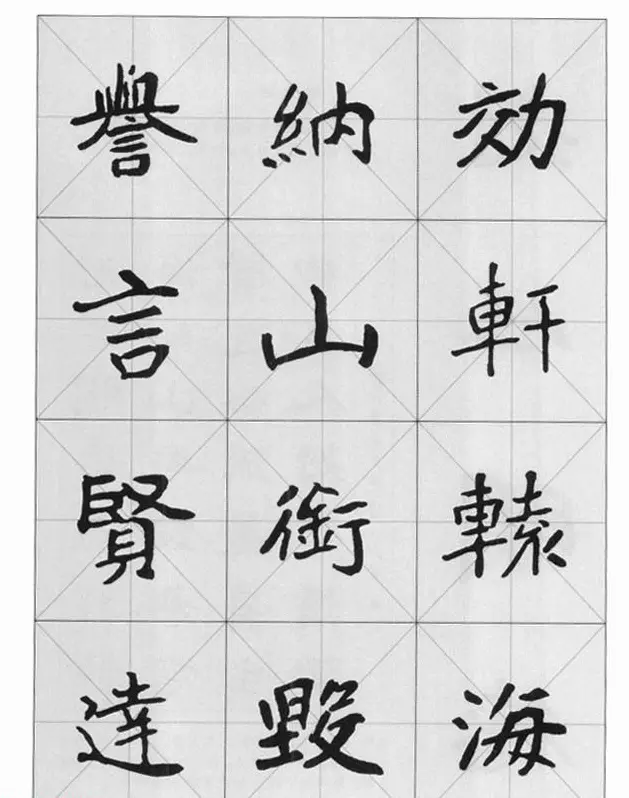 効軒轅海
納山銜毀
譽言賢達